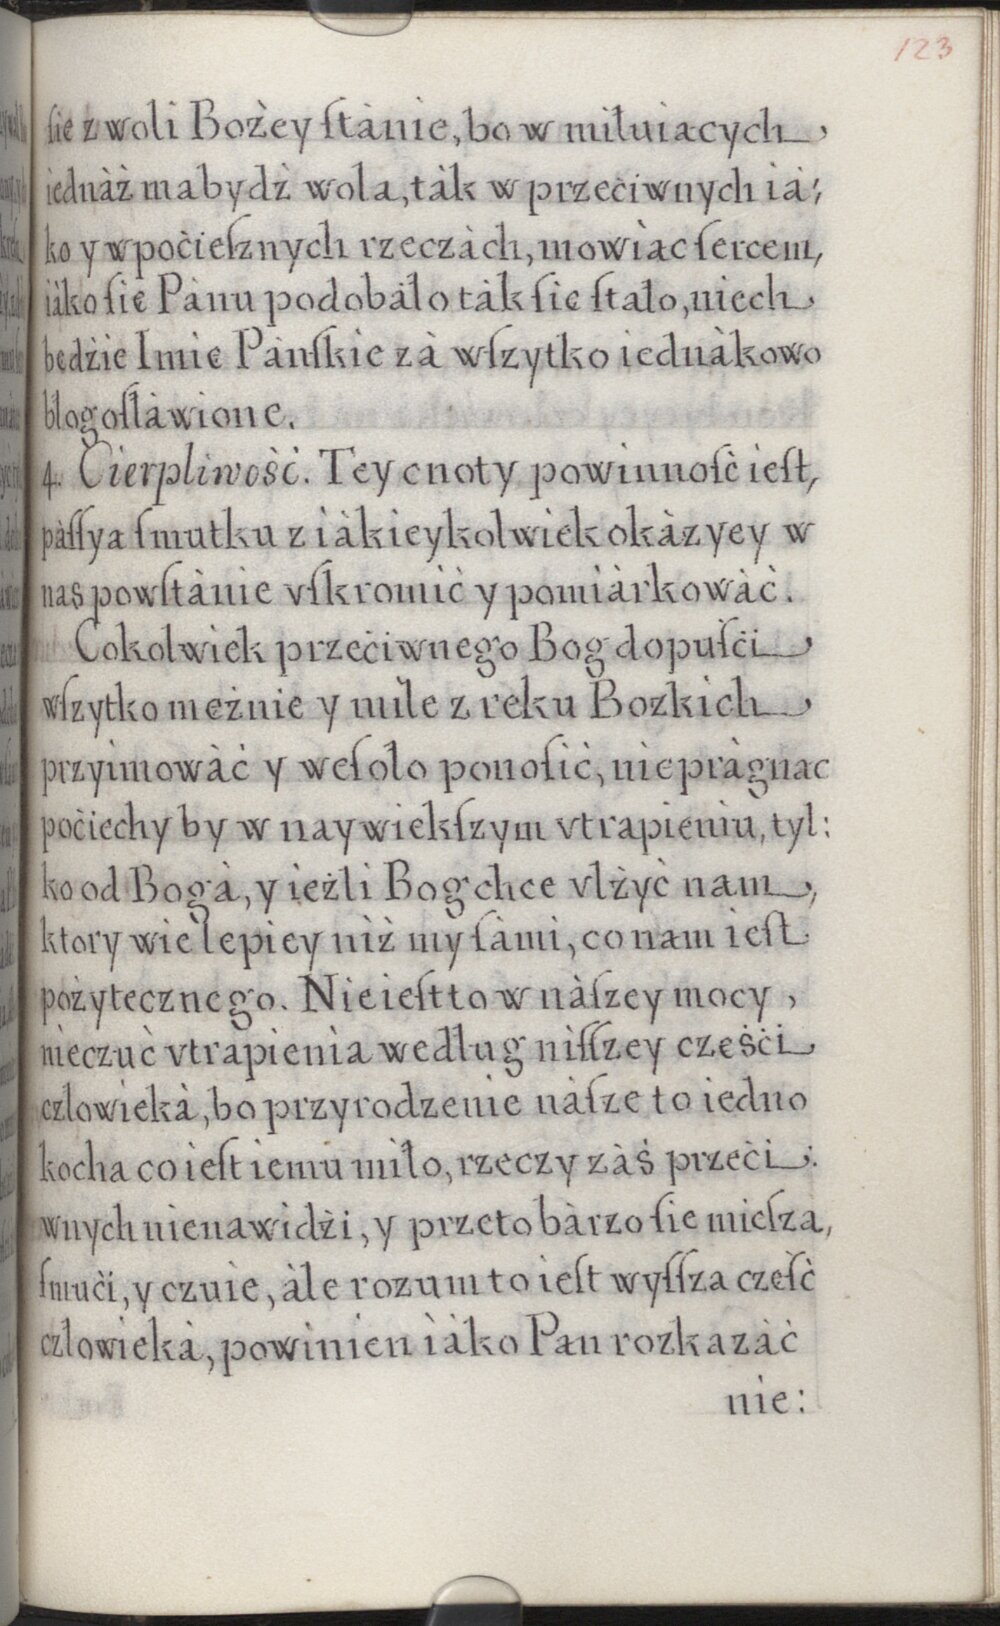 123
ſie z woli Bożey ſtànie, bo w miłuiacych
iednàż ma bydż wola, tàk w przećiwnych ià:
ko y w poćieſznych rzeczàch, mowiàc ſercem,
iàko ſię Pànu podobàło tàk ſie ſtało, niech
będżie Imię Pànſkie zà wſzytko iednàkowo
błogoſłàwione.
4. Cierpliwość. Tey cnoty powinnoſć ieſt,
pàſſya ſmutku z iàkieykolwiek okàzyey w
nas powſtànie vſkromić y pomiàrkowàć.
Cokolwiek przećiwnego Bog dopuſći
wſzytko mężnie y mile z ręku Bozkich
przyimowàć y weſoło ponoſić, nie pràgnac
poćiechy by w naywiekſzym vtrapieniu, tyl:
ko od Bogà, y ieżli Bog chce vlżyć nam,
ktory wie lepiey niż my ſàmi, co nam ieſt
pożytecznego. Nie ieſt to w nàſzey mocy,
nieczuć vtrapienia według niſſzey częśći
człowiekà, bo przyrodzenie nàſze to iedno
kocha co ieſt iemu miło, rzeczy zàś przeći:
wnych nienawidżi, y przeto bàrzo ſie mieſza,
ſmući, y czuie, àle rozum to ieſt wyſſza cześć
człowiekà, powinien iàko Pan rozkazàć
nie: